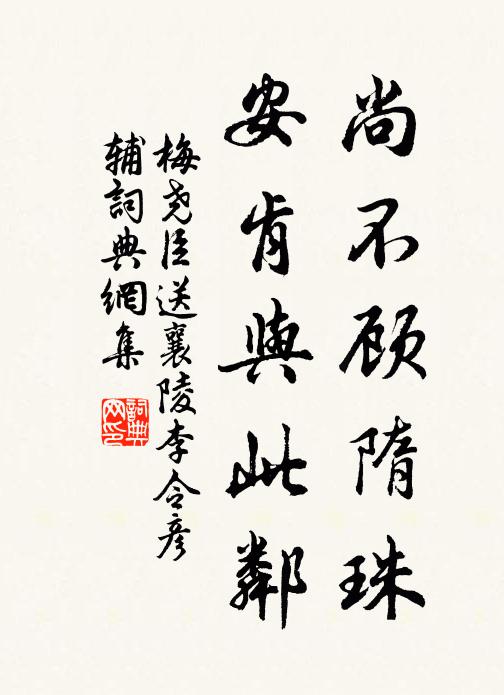 尚不顾隋珠
安肯與此鄰
梅尧臣送襄陵李令彦
辅詞典網集
詞典网印